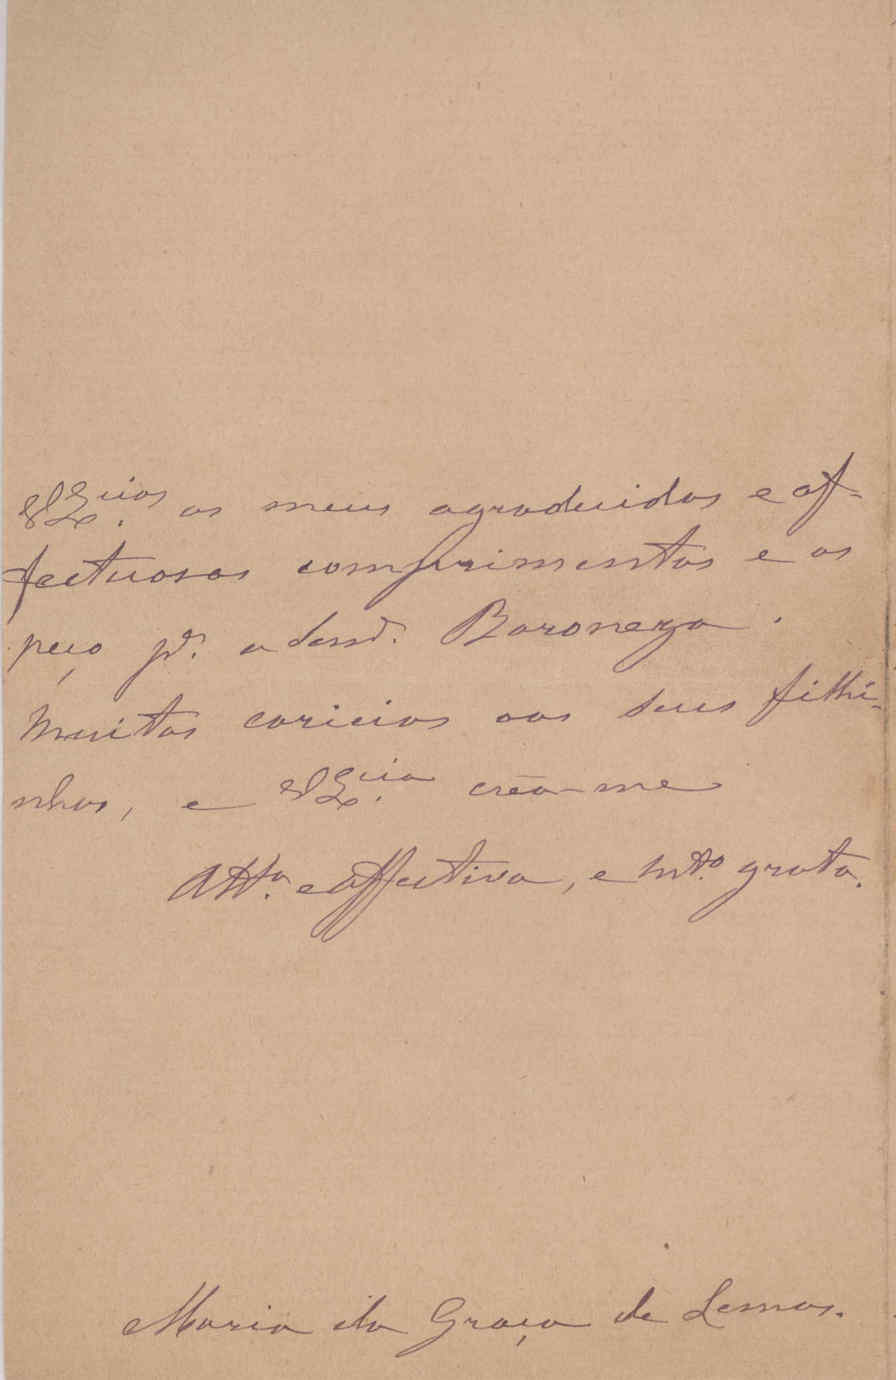 V Ex.cias os meus agradecidos e af-
fectuosos comprimentos e os
peço p.ª a Senr.ª Baroneza.
Muitas caricias aos seus filhi-
nhos, e V Ex.cia crêa-me
Att.ª e affectiva, e Mt.º grata.
Maria da Graça de Lemos.